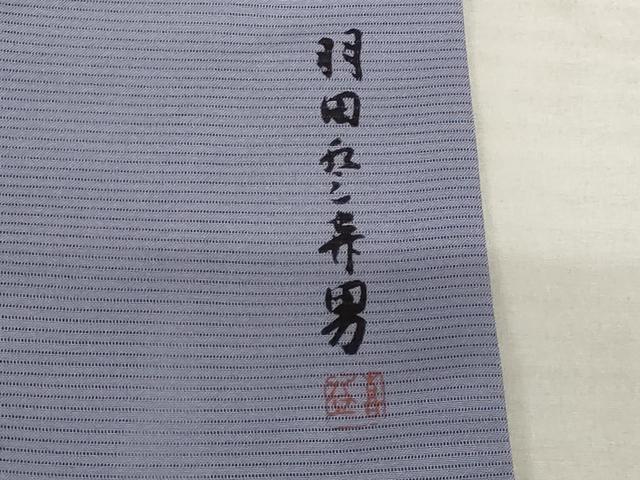 羽田登喜男